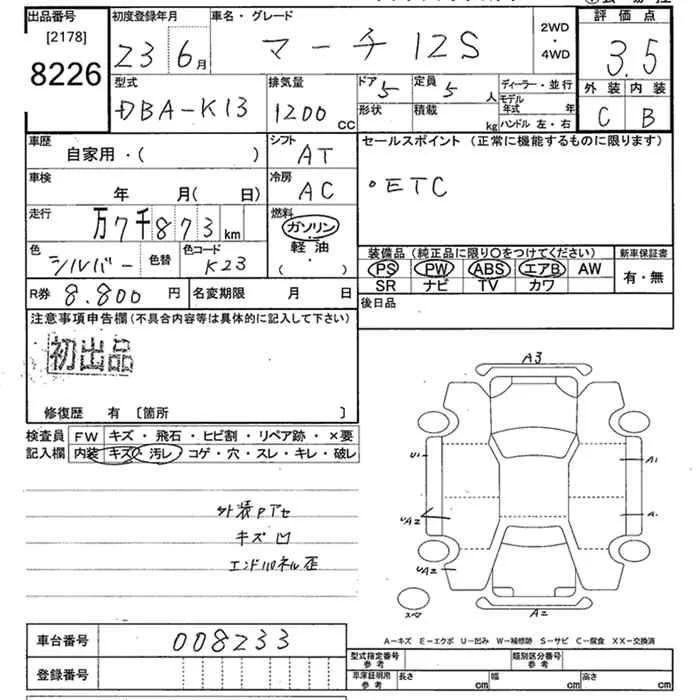 出品番号 [2178] 8226
初度登録年月 23 6月
車名・グレード マーチ 12S
2WD・4WD
評価点 3.5
外装 C 内装 B
型式 DBA-K13
排気量 1200 CC
ドア 5 形状
定員 5 人 積載 kg
ディーラー・並行
モデル年式 年
ハンドル 左・右
車歴 自家用・( )
シフト AT
セールスポイント (正常に機能するものに限ります)
・ETC
車検 年 月( 日)
冷房 AC
走行 万7千873 km
燃料 ガソリン・軽油 ( ・ )
色 シルバー 色替 色コード K23
装備品 (純正品に限り○をつけてください)
PS PW ABS エアB AW
SR ナビ TV カワ
新車保証書 有・無
R券 8.800 円 名変期限 月 日
後日品
注意事項申告欄 (不具合内容等は具体的に記入して下さい)
初出品
修復歴 有 〔箇所 〕
検査員記入欄
FW キズ・飛石・ヒビ割・リペア跡・×要
内装 キズ・汚レ・コゲ・穴・スレ・キレ・破レ
キズ 凹
エンドパネル歪
A3
U1
A1
UA2
A.
UA2
A2
スペ
A−キズ E−エクボ U−凹み W−補修跡 S−サビ C−腐食 XX−交換済
車台番号 008233
登録番号
型式指定番号 参考
類別区分番号 参考
車庫証明用 参考 長さ cm 幅 cm 高さ cm